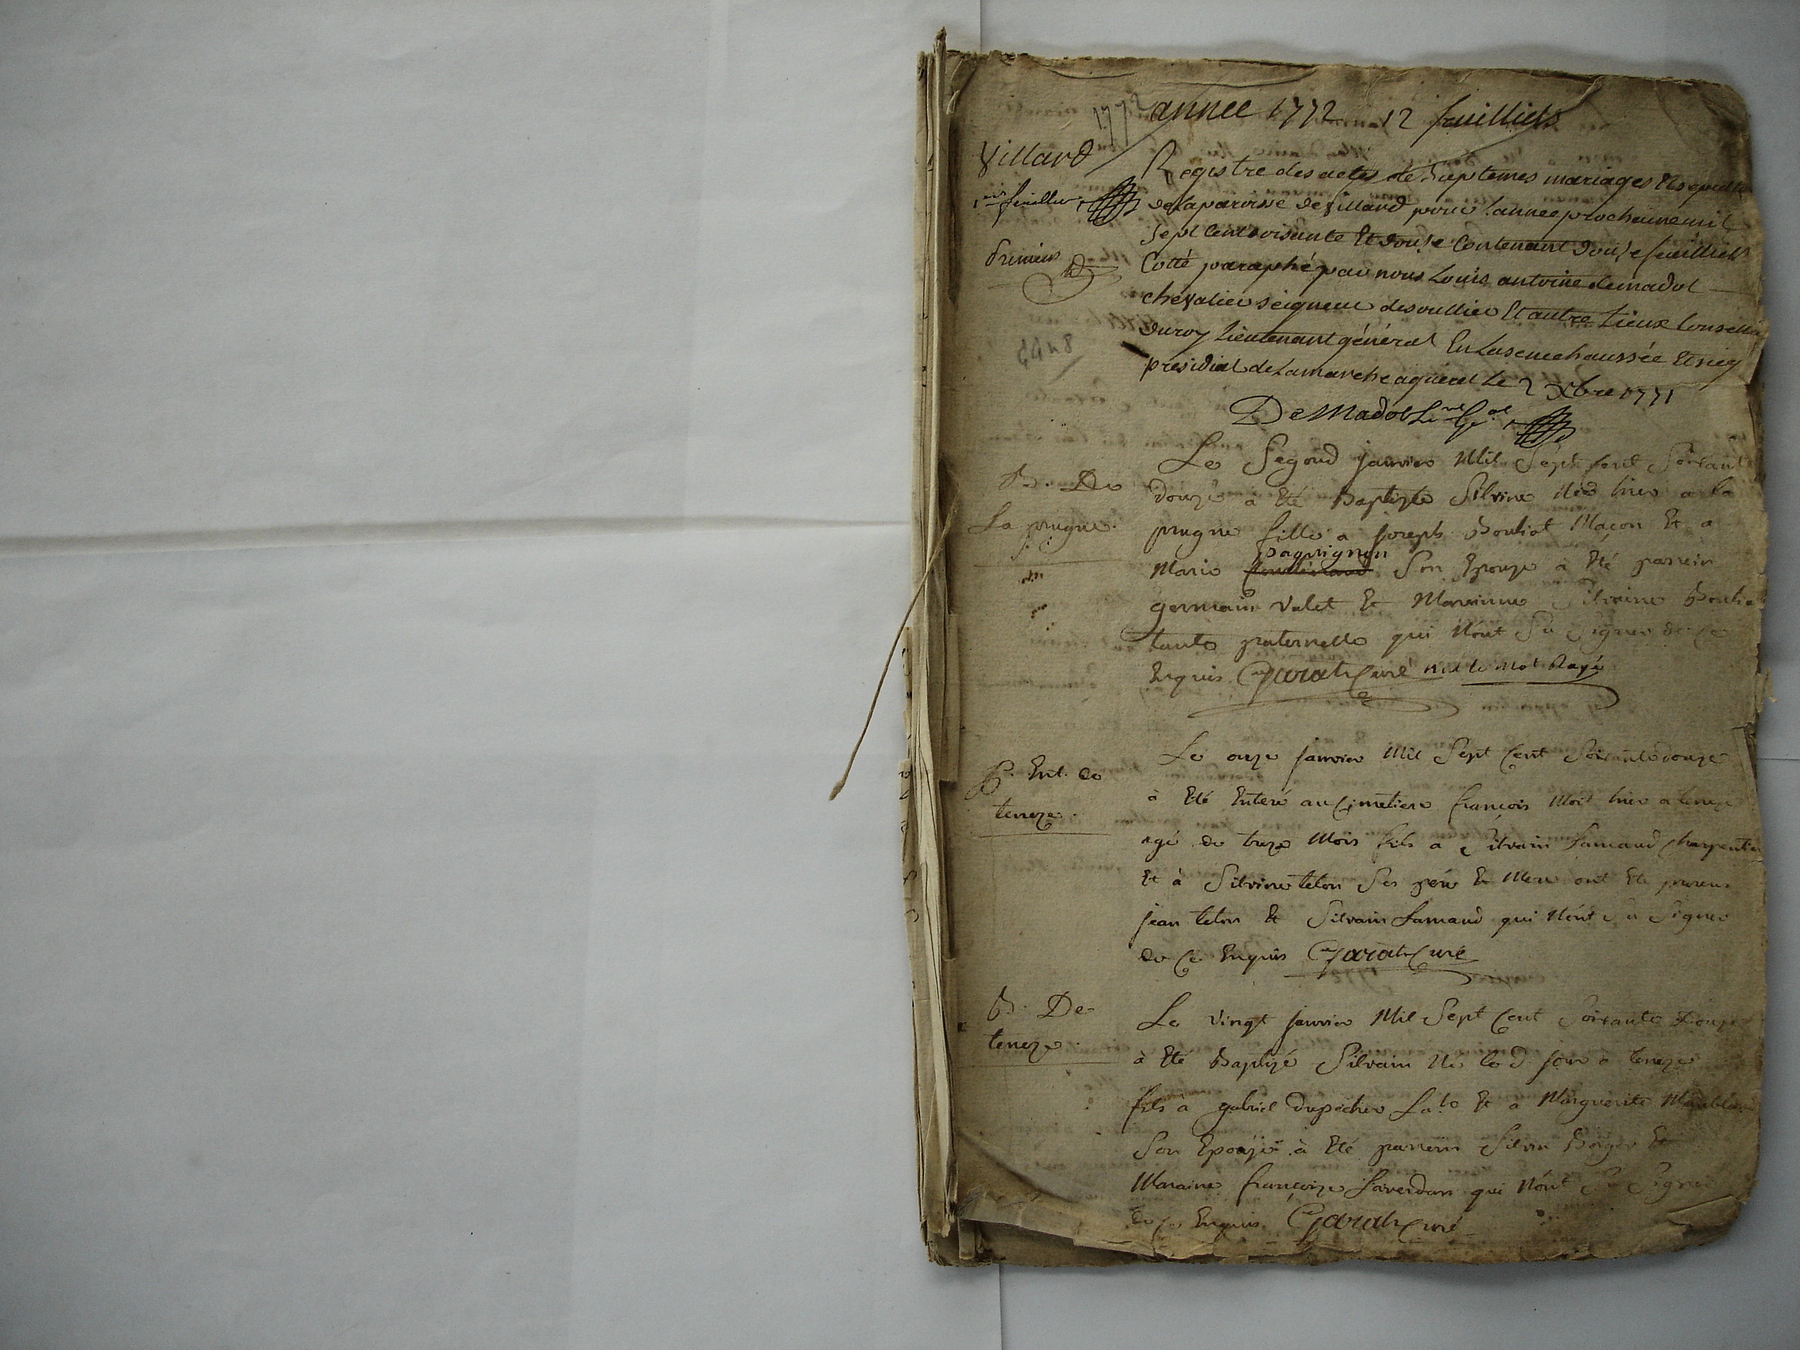 1772 année 1772 12 feuilliets
Villard
1er feuillet
Premier
Registre des actes de Baptemes mariages et sepult
de la paroisse de Villard pour l'année prochaine mil
sept cent soisante et douse contenant douse feuilliets
Cotté paraphé par nous Louis antoine demadot
chevalier seigneur desoullier et autre Lieux Conseiller
du roy Lieutenant général en La senechaussée et sieg
présidial de Lamarche a guéret Le 2 Xbre 1771
De Madot Lnt Gal
B. De
La prugne
Le Segond janvier Mil Sept Cent Soixante
douze à Eté Baptizée Silvine Née hier a la
prugne fille a joseph Bouliot Maçon Et a
paquignon
Marie Son Epouze à Eté parrein
germain Valet Et Marrainne Silvaine Boulio
tante paternelle qui N'ont Su Signer de Ce
Enquis Garat Curé nul le mot Rayé
P. Ent. de
teneze
Le onze janvier Mil Sept Cent Soixante douze
à Eté Enteré au Cimetiere françois Mort hier a teneze
agé de treze Mois fils a Silvain Lamaud Charpentier
Et à Silvine telon Ses père Et Mere ont Eté presens
jean telon Et Silvain Lamaud qui N'ont Su Signer
de Ce Enquis Garat Curé
B. De
teneze
Le Vingt janvier Mil Sept Cent Soixante Douze
à Eté Baptizé Silvain Né le d jour a teneze
fils à gabriel dupecher La.re Et a Marguerite
Son Epouze à Eté parrein Silvin Et
Maraine françoize Laverdan qui N'ont Su Signer
de Ce Enquis Garat Curé